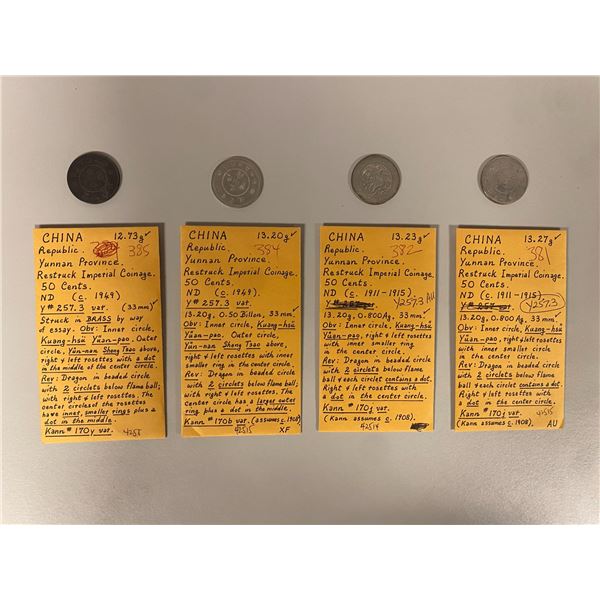 CHINA 12.73g✓
Republic. 385
Yunnan Province.
Restruck Imperial Coinage.
50 Cents.
ND (c. 1949)
Y# 257.3 var. (33mm)✓
Struck in BRASS by way
of essay. Obv: Inner circle,
Kuang-hsü Yüan-pao. Outer
circle, Yün-nan Sheng Tsao above,
right & left rosettes with a dot
in the middle of the center circle.
Rev: Dragon in beaded circle
with 2 circlets below flame ball;
with right & left rosettes. The
center circles of the rosettes
have inner, smaller rings plus a
dot in the middle.
Kann # 170y var.
CHINA 13.20g✓
Republic. 384
Yunnan Province.
Restruck Imperial Coinage.
50 Cents.
ND (c. 1949).
Y# 257.3 var.
13.20g, 0.50 Billon, 33 mm✓
Obv: Inner circle, Kuang-hsü
Yüan-pao. Outer circle,
Yün-nan Sheng Tsao above,
right & left rosettes with inner
smaller ring in the center.
Rev: Dragon in beaded circle
with 2 circlets below flame ball;
with right & left rosettes. The
center circle has a larger outer
ring, plus a dot in the middle.
Kann # 170b var. (assumes c. 1908)
42515 XF
CHINA 13.23g✓
Republic. 382
Yunnan Province.
Restruck Imperial Coinage.
50 Cents.
ND (c. 1911-1915)
Y257.3 AU
13.20g, 0.800Ag, 33mm✓
Obv: Inner circle, Kuang-hsü
Yüan-pao, right & left rosettes
with inner smaller ring
in the center circle.
Rev: Dragon in beaded circle
with 2 circlets below flame
ball & each circlet contains a dot.
Right & left rosettes with
a dot in the center circle.
Kann # 170j var.
(Kann assumes c. 1908).
42514
CHINA 13.27g✓
Republic. 381
Yunnan Province.
Restruck Imperial Coinage.
50 Cents.
ND (c. 1911-1915)
Y257.3
13.20g, 0.800Ag, 33mm✓
Obv: Inner circle, Kuang-hsü
Yüan-pao, right & left rosettes
with inner smaller circle
in the center circle.
Rev: Dragon in beaded circle
with 2 circlets below flame
ball & each circlet contains a dot.
Right & left rosettes with
a dot in the center circle.
Kann # 170j var.
(Kann assumes c. 1908). AU